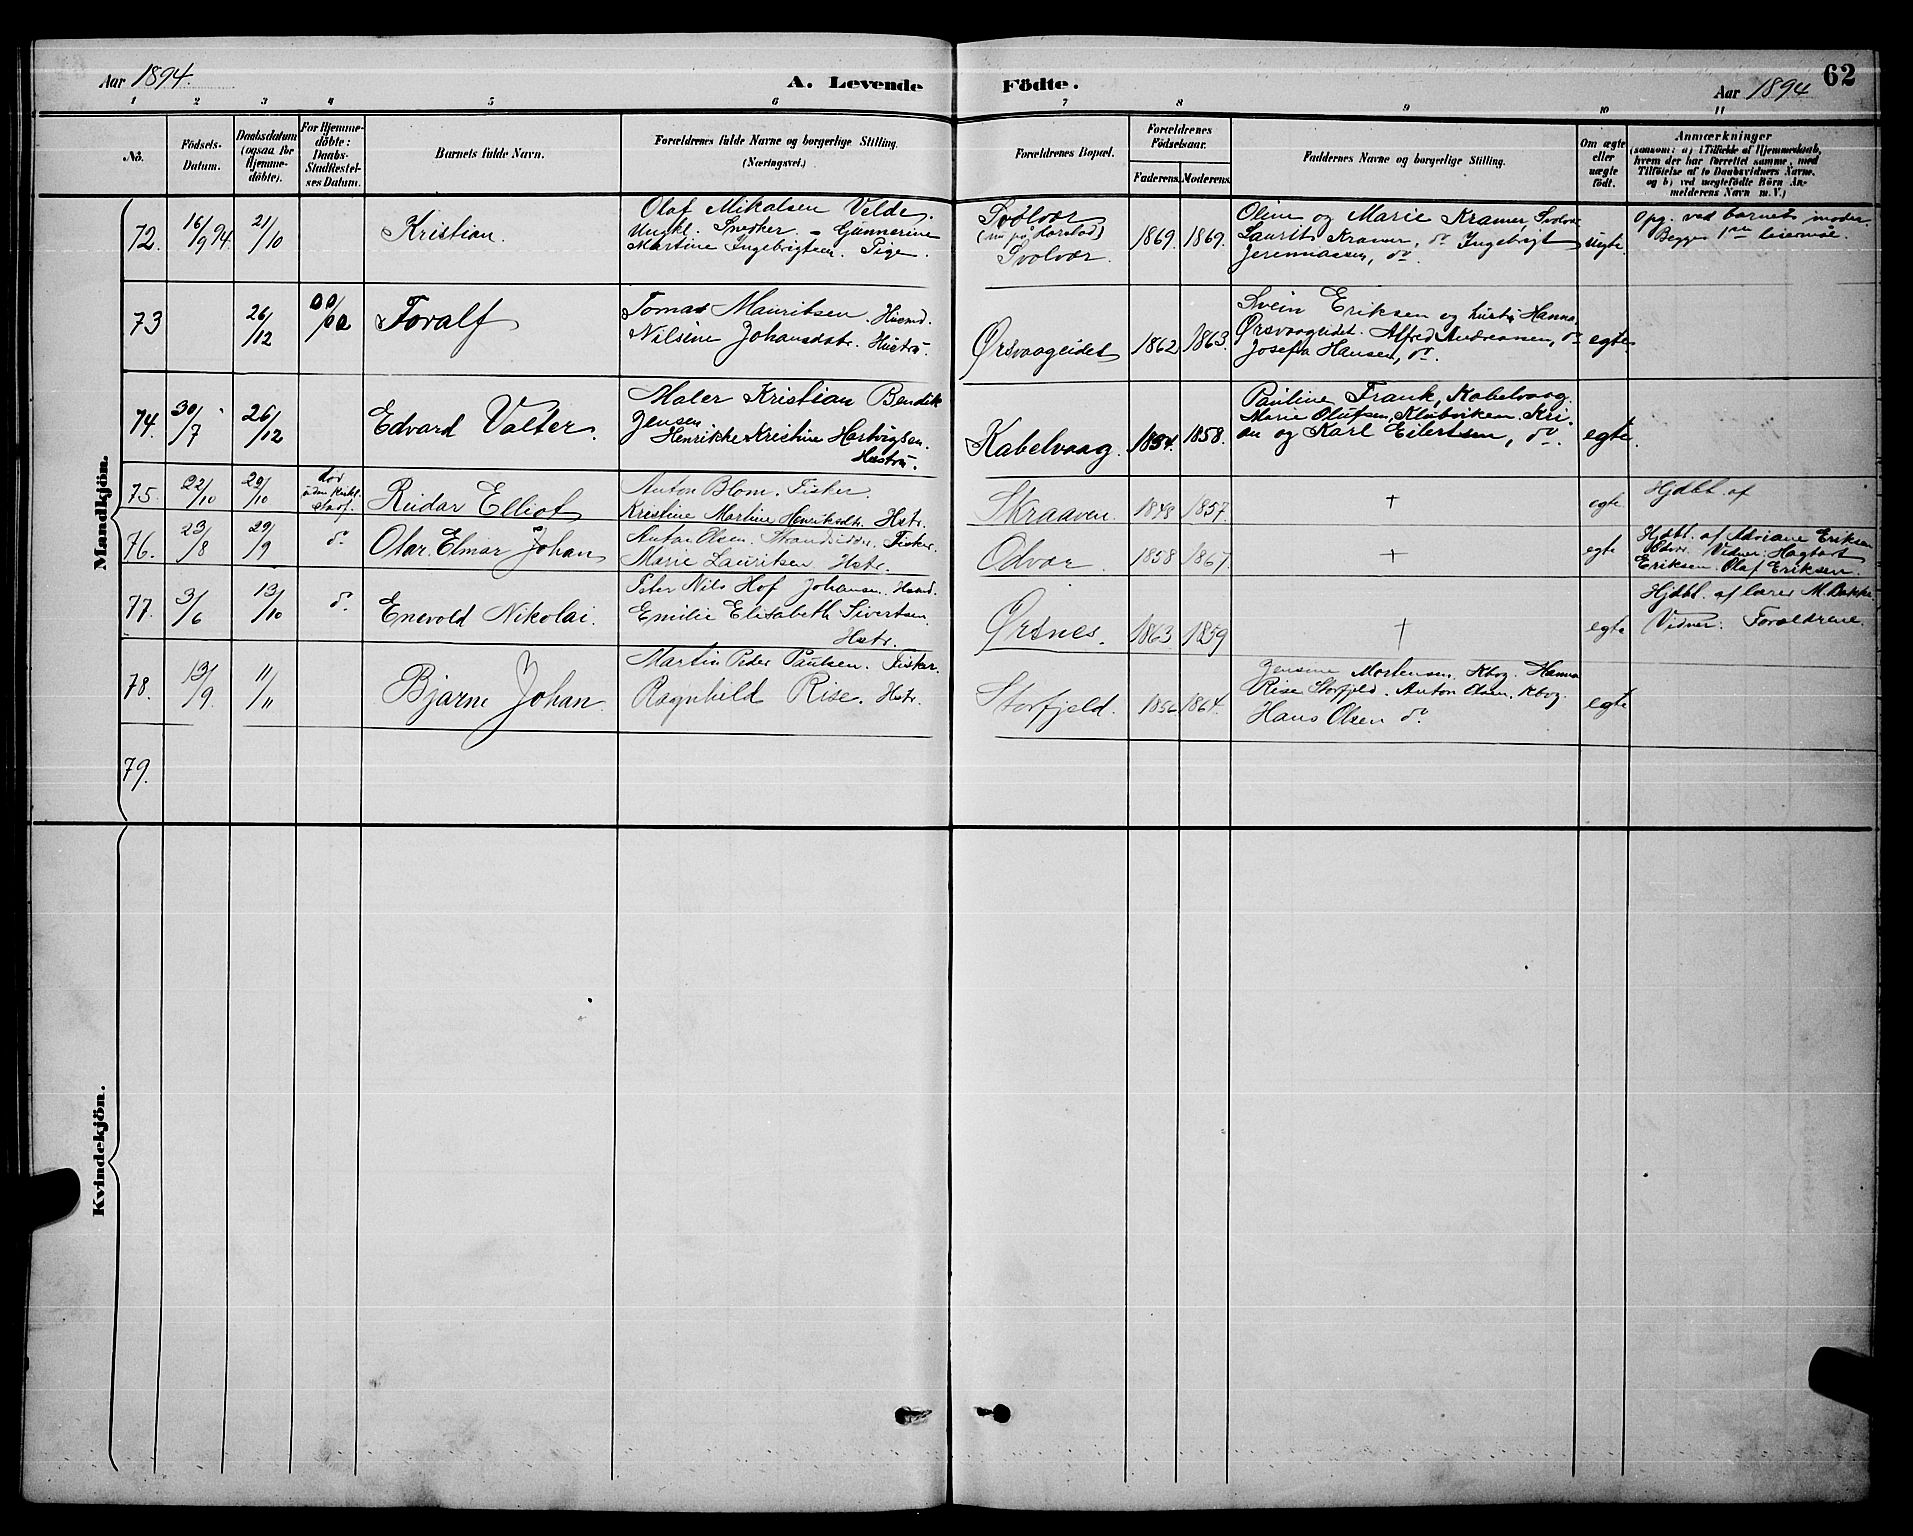 Aar 1894.
A. Levende
Födte.
Aar 1894
62
1 2 3 4 5 6 7 8 9 10 11
No.
Födsels-
Datum.
Daabsdatum
(ogsaa for
Hjemme-
döbte).
For Hjemme-
döbte:
Daabs-
Stadfæstel-
ses Datum.
Barnets fulde Navn.
Forældrenes fulde Navne og borgerlige Stilling.
(Næringsvei.)
Forældrenes Bopæl.
Forældrenes
Födselsaar.
Faderens.
Moderens.
Faddernes Navne og borgerlige Stilling.
Om ægte
eller
uægte
født.
Anmærkninger
(saasom: a) i Tilfælde af Hjemmedaab,
hvem der har forrettet samme, med
Tilföielse af to Daabsvidners Navne,
og b) ved uægtefödte Börn An-
melderens Navn m. V.)
Mandkjön.
72. 16/9 94. 21/10
Kristian.
Olaf Mikalsen Velde.
Ungkl. Snedker. - Gunnerine
Martine Ingebrigtsen. Pige.
Svolvær
(nu på Harstad)
Svolvær.
1869. 1869.
Oline og Marie Kramer, Svolvær
Laurits Kramer, do. Ingebrigt
Jeremiassen, do.
uegte
Opg. ved barnets moder.
Begges 1ste leiermål.
73 26/12 00/00
Toralf
Tomas Mauritsen. Husmd.
Nilsine Johansdtr. Hustru.
Ørsvaageidet
1862 1863.
Svein Eriksen og hustr. Hanna.
Ørsvaageidet. Alfred Andreassen, do
Josefa Hansen, do.
egte
74. 30/7 26/12
Edvard Valter.
Maler Kristian Bendik
Jensen
Henrikke Kristine Hartvigsen.
Hustru.
Kabelvaag.
1854. 1858.
Pauline Frank, Kabelvaag.
Marie Olufsen, Klubviken. Kri-
an og Karl Eilertsen, do.
egte.
75. 22/10 29/10
død
uden
Reidar Elliot
Anton Blom. Fisker.
Kristine Martine Henriksdtr. Hstr.
Skraaven.
1848 1857.
+
egte
Hjdbt. af
76. 23/8 29/9 do.
Olar Elmar Johan
Anton Olsen. Strandsidder. Fisker.
Marie Lauritsen Hstr.
Odvær.
1858 1867.
+
egte
Hjdbt. af Adriane Eriksen
Odvr. Vidner: Hagbart
Eriksen. Olaf Eriksen.
77. 3/6 13/10 do.
Enevold Nikolai.
Peter Nils Hof Johansen. Husmd.
Emilie Elisabeth Sivertsen.
Hstr.
Ørsnes.
1863 1859
+
egte
Hjdbt. af lærer M. Bakke.
Vidner: Forældrene.
78. 13/9 11/11
Bjarne Johan.
Martin Peder Paulsen. Fisker.
Ragnhild Rise. Hstr.
Storfjeld.
1856 1864.
Jensine Mortensen. Kbvg. Hanna
Rise Storfjeld. Anton Olsen. Kbvg.
Hans Olsen do
egte
79.
Kvindekjön.